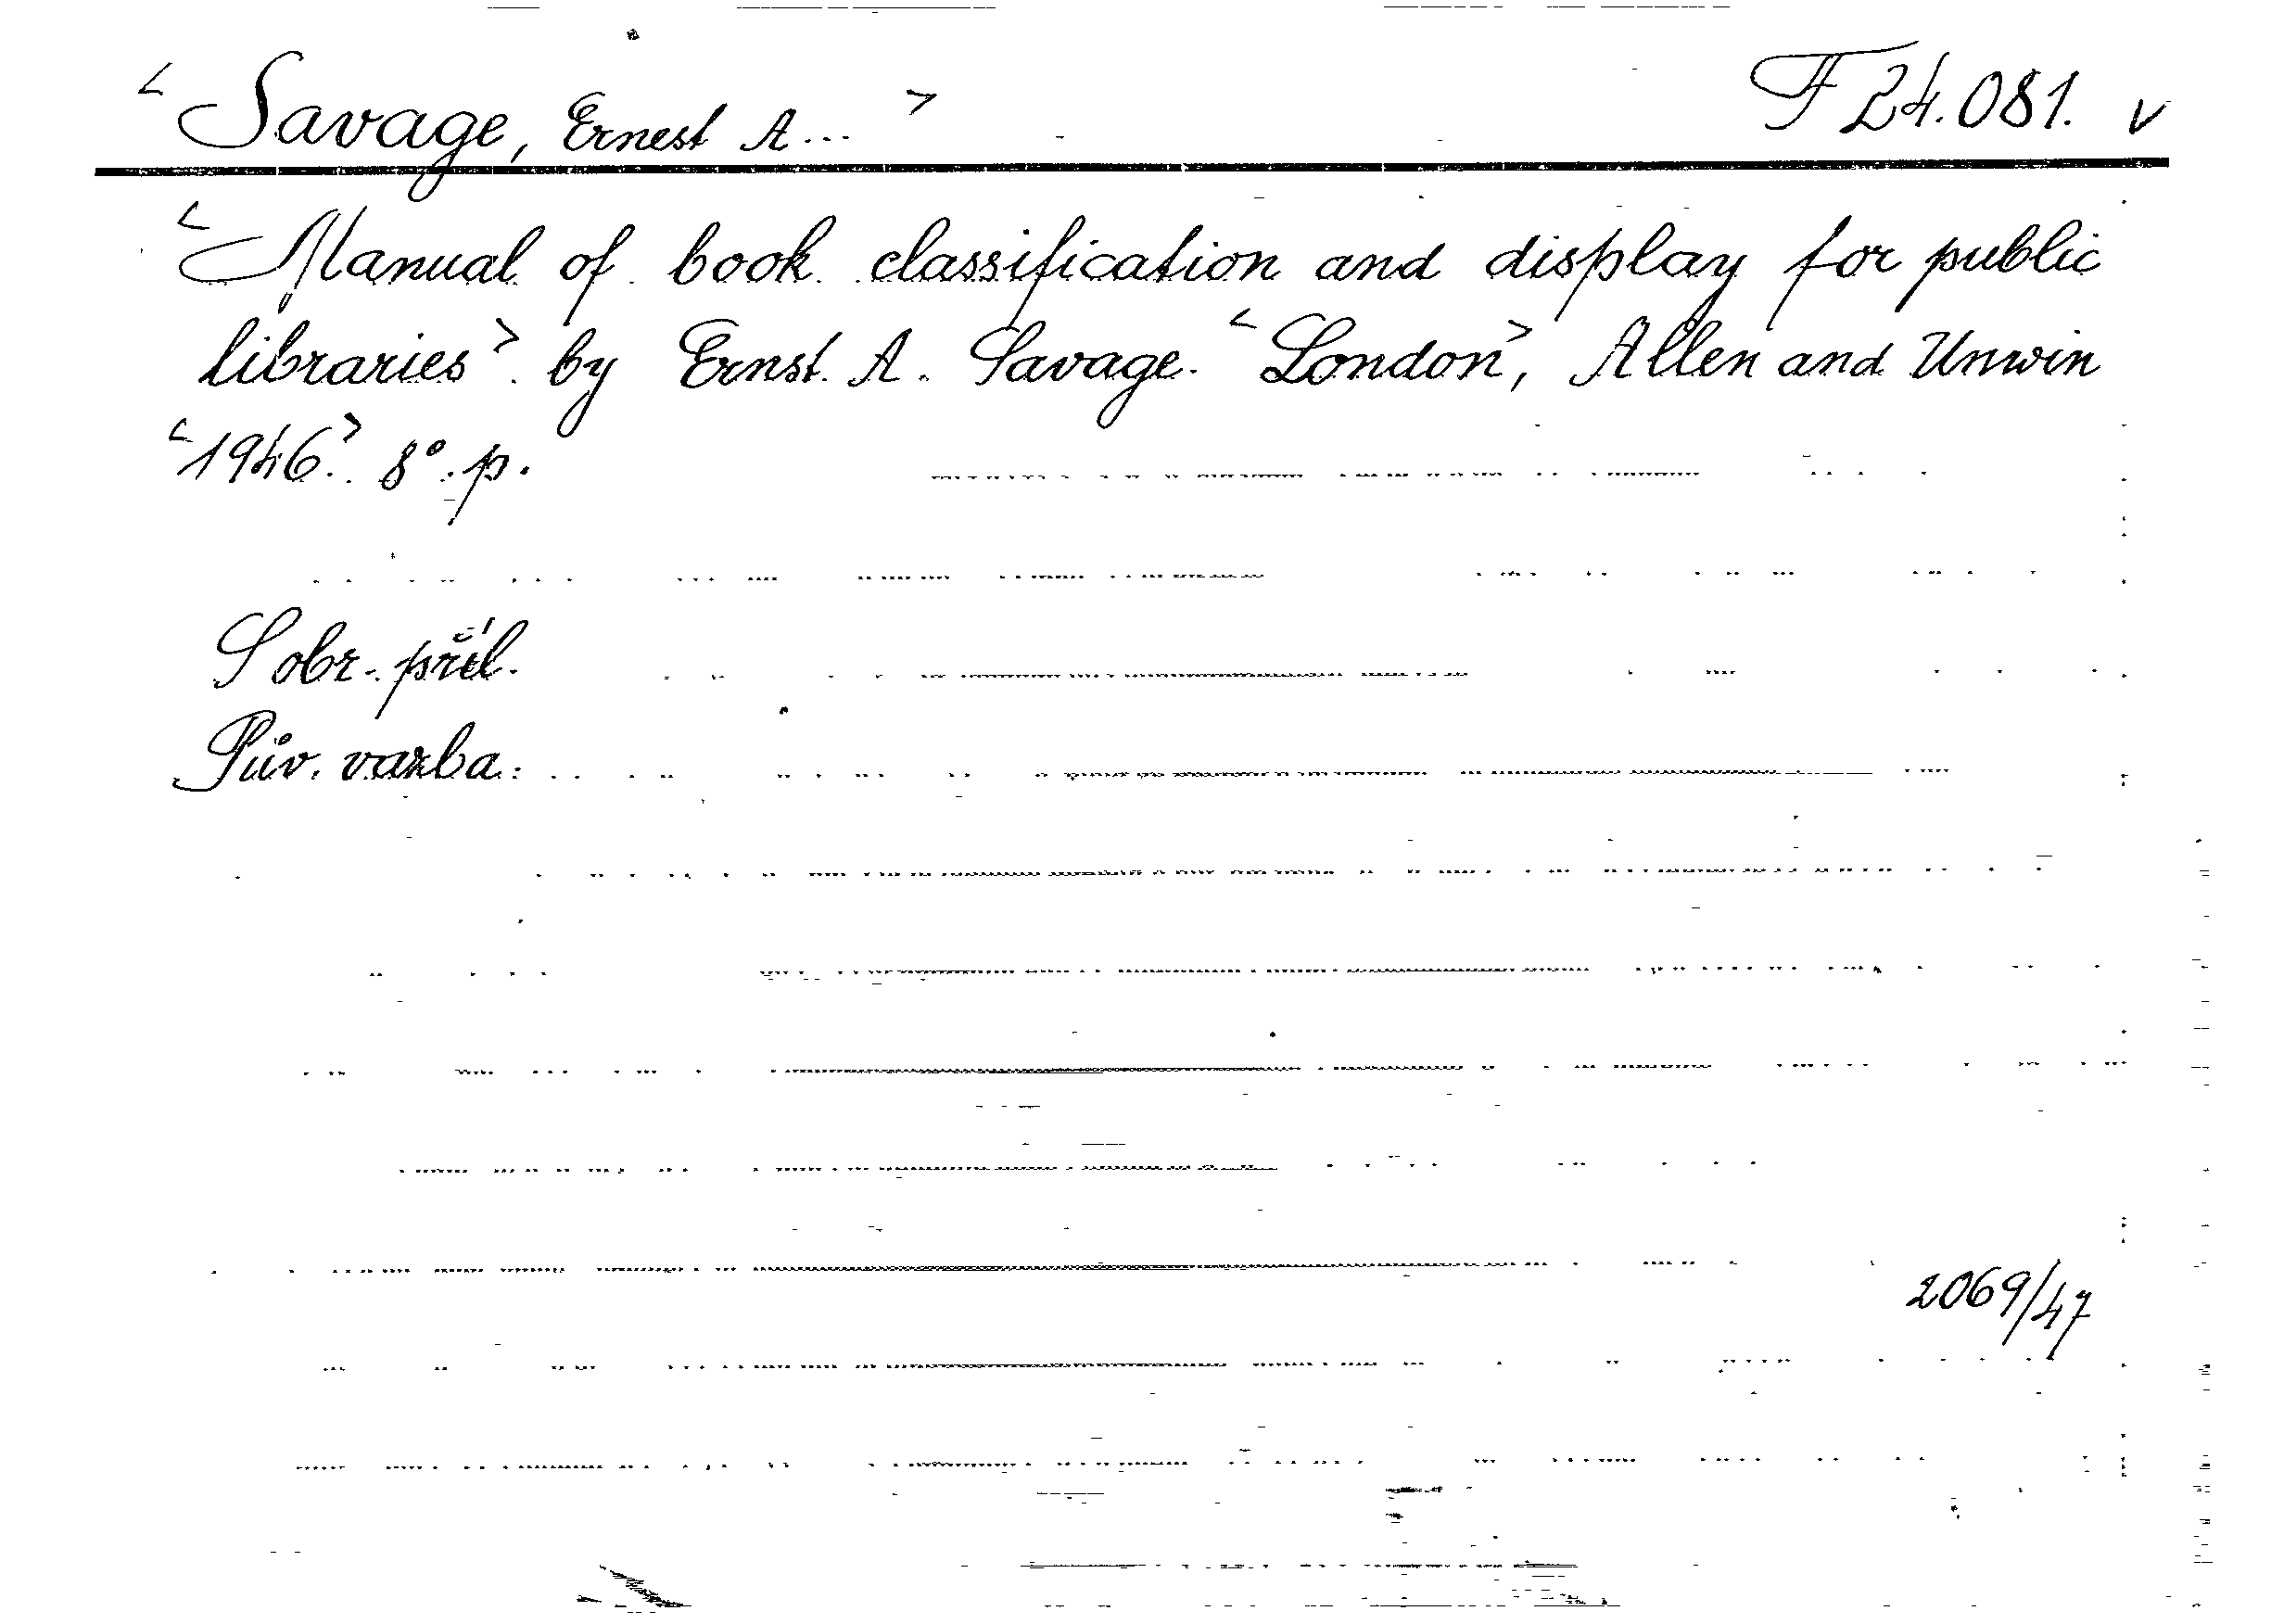 < Savage, Ernest A... > F 24.081. v
< Manual of book classification and display for public
libraries >. by Ernst. A. Savage. < London >, Allen and Unwin
< 1946. >. 8°. p.
S obr. příl.
Pův. vazba.
2069/47